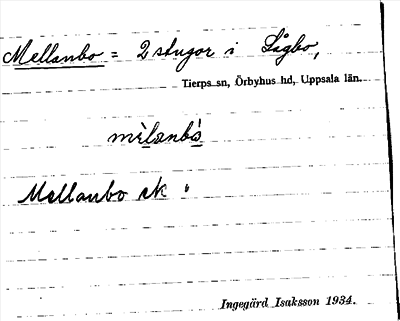 Mellanbo = 2 stugor i Lågbo,
Tierps sn, Örbyhus hd, Uppsala län.
mèlanbò
Mellanbo ek
Ingegärd Isaksson 1934.